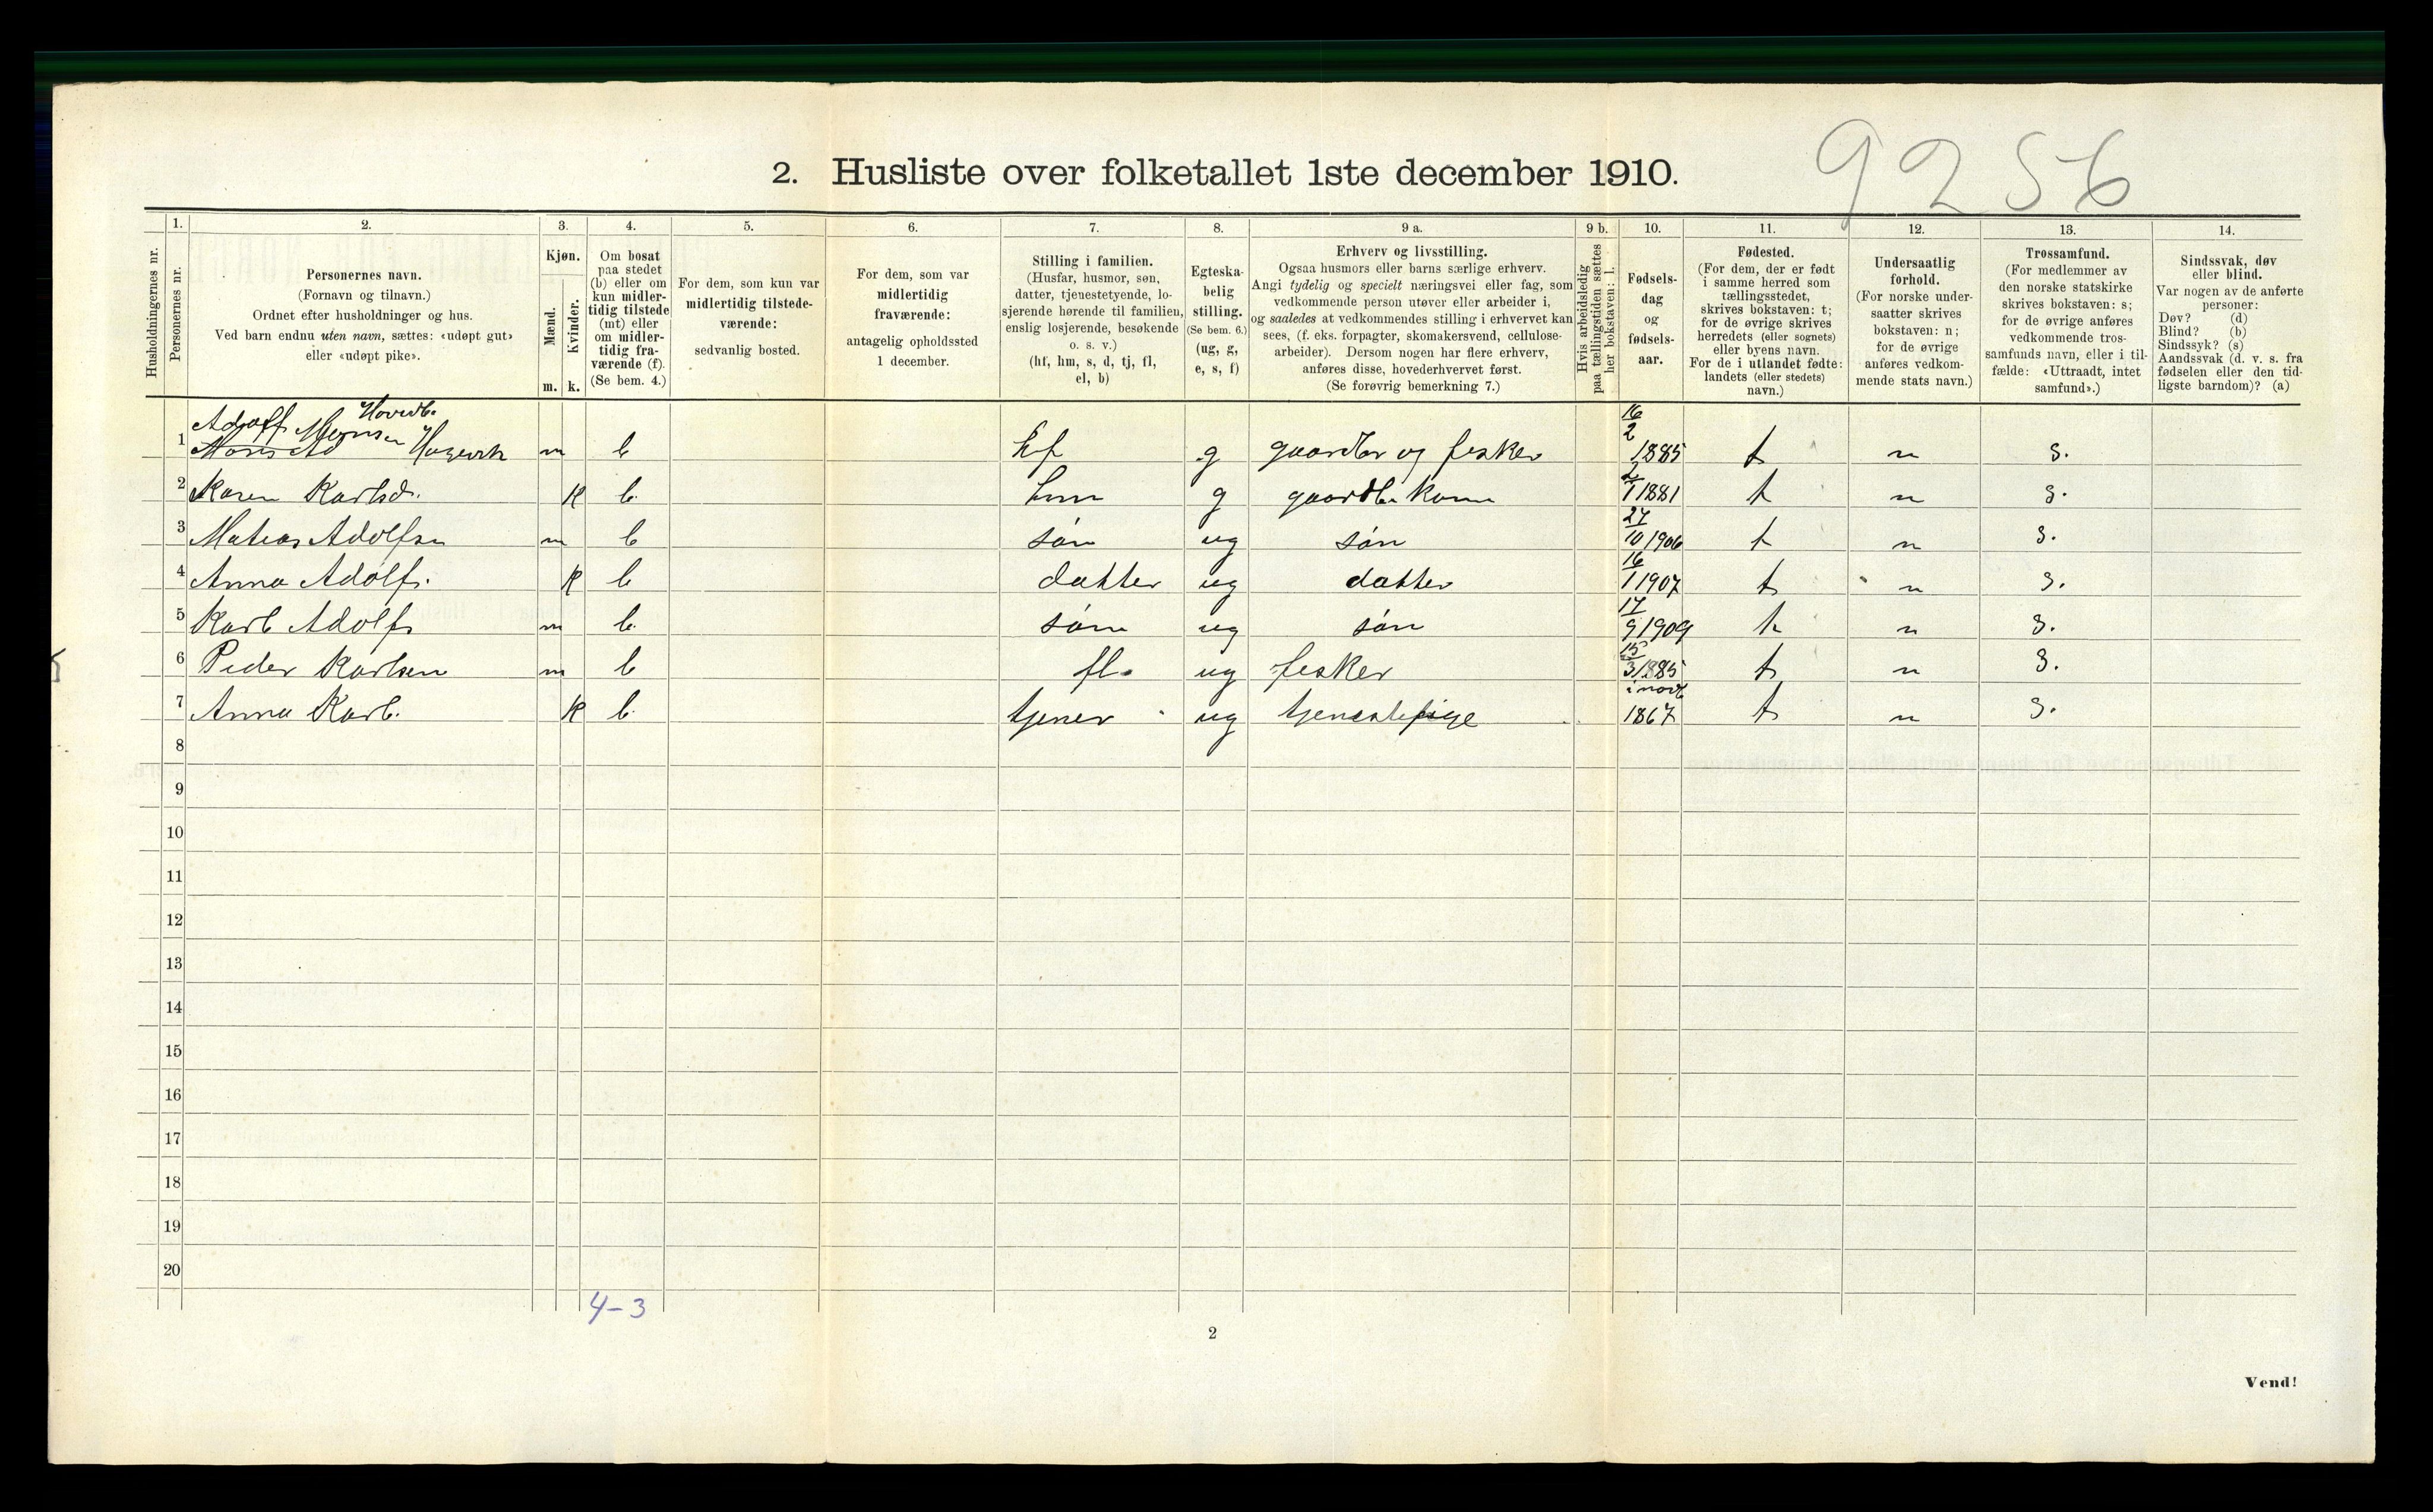 9256
2. Husliste over folketallet 1ste december 1910.
Husholdningernes nr.
1.
Personernes nr.
2.
Personernes navn.
(Fornavn og tilnavn.)
Ordnet efter husholdninger og hus.
Ved barn endnu uten navn, sættes: «udøpt gut»
eller «udøpt pike».
3.
Kjøn.
Mænd.
Kvinder.
m. k.
4.
Om bosat
paa stedet
(b) eller om
kun midler-
tidig tilstede
(mt) eller
om midler-
tidig fra-
værende (f).
(Se bem. 4.)
5.
For dem, som kun var
midlertidig tilstede-
værende:
sedvanlig bosted.
6.
For dem, som var
midlertidig
fraværende:
antagelig opholdssted
1 december.
7.
Stilling i familien.
(Husfar, husmor, søn,
datter, tjenestetyende, lo-
sjerende hørende til familien,
enslig losjerende, besøkende
o. s. v.)
(hf, hm, s, d, tj, fl,
el, b)
8.
Egteska-
belig
stilling.
(Se bem. 6.)
(ug, g,
e, s, f)
9 a.
Erhverv og livsstilling.
Ogsaa husmors eller barns særlige erhverv.
Angi tydelig og specielt næringsvei eller fag, som
vedkommende person utøver eller arbeider i,
og saaledes at vedkommendes stilling i erhvervet kan
sees, (f. eks. forpagter, skomakersvend, cellulose-
arbeider). Dersom nogen har flere erhverv,
anføres disse, hovederhvervet først.
(Se forøvrig bemerkning 7.)
9 b.
Hvis arbeidsledig
paa tællingstiden sættes
her bokstaven: l.
10.
Fødsels-
dag
og
fødsels-
aar.
11.
Fødested.
(For dem, der er født
i samme herred som
tællingsstedet,
skrives bokstaven: t;
for de øvrige skrives
herredets (eller sognets)
eller byens navn.
For de i utlandet fødte:
landets (eller stedets)
navn.)
12.
Undersaatlig
forhold.
(For norske under-
saatter skrives
bokstaven: n;
for de øvrige
anføres vedkom-
mende stats navn.)
13.
Trossamfund.
(For medlemmer av
den norske statskirke
skrives bokstaven: s;
for de øvrige anføres
vedkommende tros-
samfunds navn, eller i til-
fælde: «Uttraadt, intet
samfund».)
14.
Sindssvak, døv
eller blind.
Var nogen av de anførte
personer:
Døv? (d)
Blind? (b)
Sindssyk? (s)
Aandssvak (d. v. s. fra
fødselen eller den tid-
ligste barndom)? (a)
Hovedb.
1 Adolf Monsen m b hf g gaardbr og fesker 16/2 1885 t n s.
2 Karen Karlsd. k b. hm g gaardb. kone 2/1 1881 t n s.
3 Matias Adolfsn m b søn ug søn 27/10 1906 t n s.
4 Anna Adolfs. k b datter ug datter 16/1 1907 t n s.
5 Karl Adolfs m b. søn ug søn 17/9 1909 t n s.
6 Peder Karlsen m b fl. ug fesker 15/3 1885 t n s.
7 Anna Karl. k b. tjener ug tjenestepige i novb 1867 t n s.
8
9
10
11
12
13
14
15
16
17
18
19
20
4-3
2
Vend!